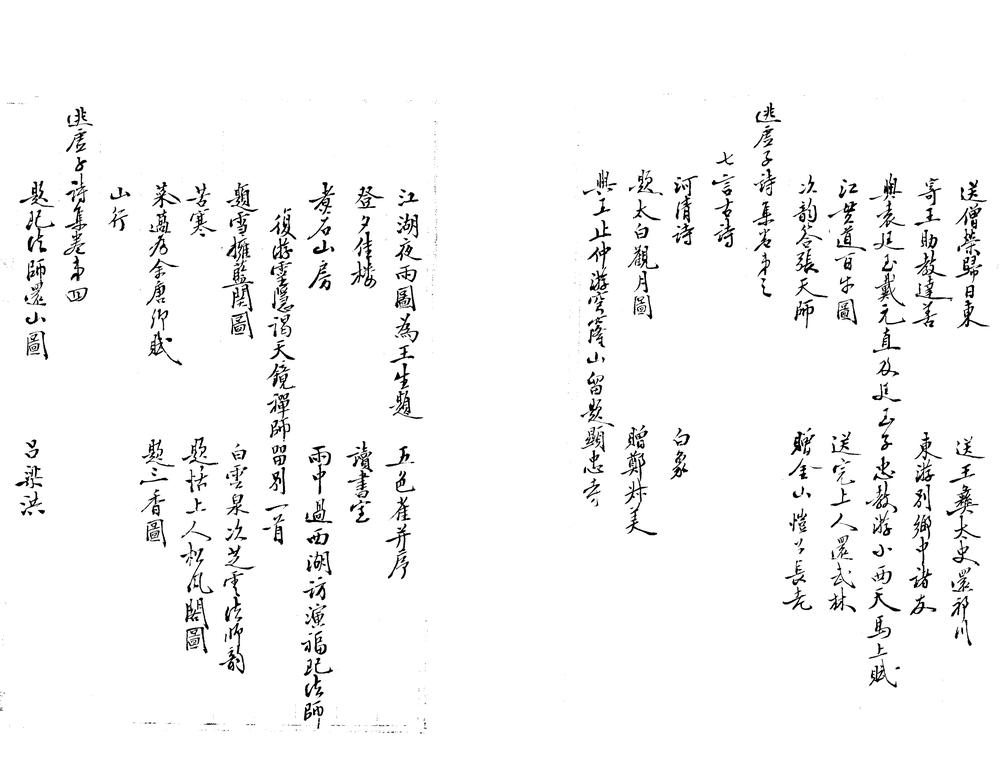 送僧榮歸日東　送王彝太史還祁川
寄王助教達善　東游別鄉中諸友
與袁廷玉戴元直及廷玉子忠教游小西天馬上賦
江貫道百牛圖　送完上人還武林
次韵答張天師　贈金山愷公長老
逃虛子詩集卷第三
七言古詩
河清詩　白象
題太白觀月圖　贈鄭叔美
與王止仲游穹窿山留題顯忠寺
江湖夜雨圖為王生題　五色雀并序
登夕佳樓　讀書室
黃石山房　雨中過西湖訪演福玘法師
復游靈隱謁天鏡禪師留別一首
題雪擁藍關圖　白雲泉次芝雲法師韵
苦寒　題恬上人松風閣圖
菜薖為余唐卿賦　題三香圖
山行
逃虛子詩集卷第四
題玘法師還山圖　呂梁洪